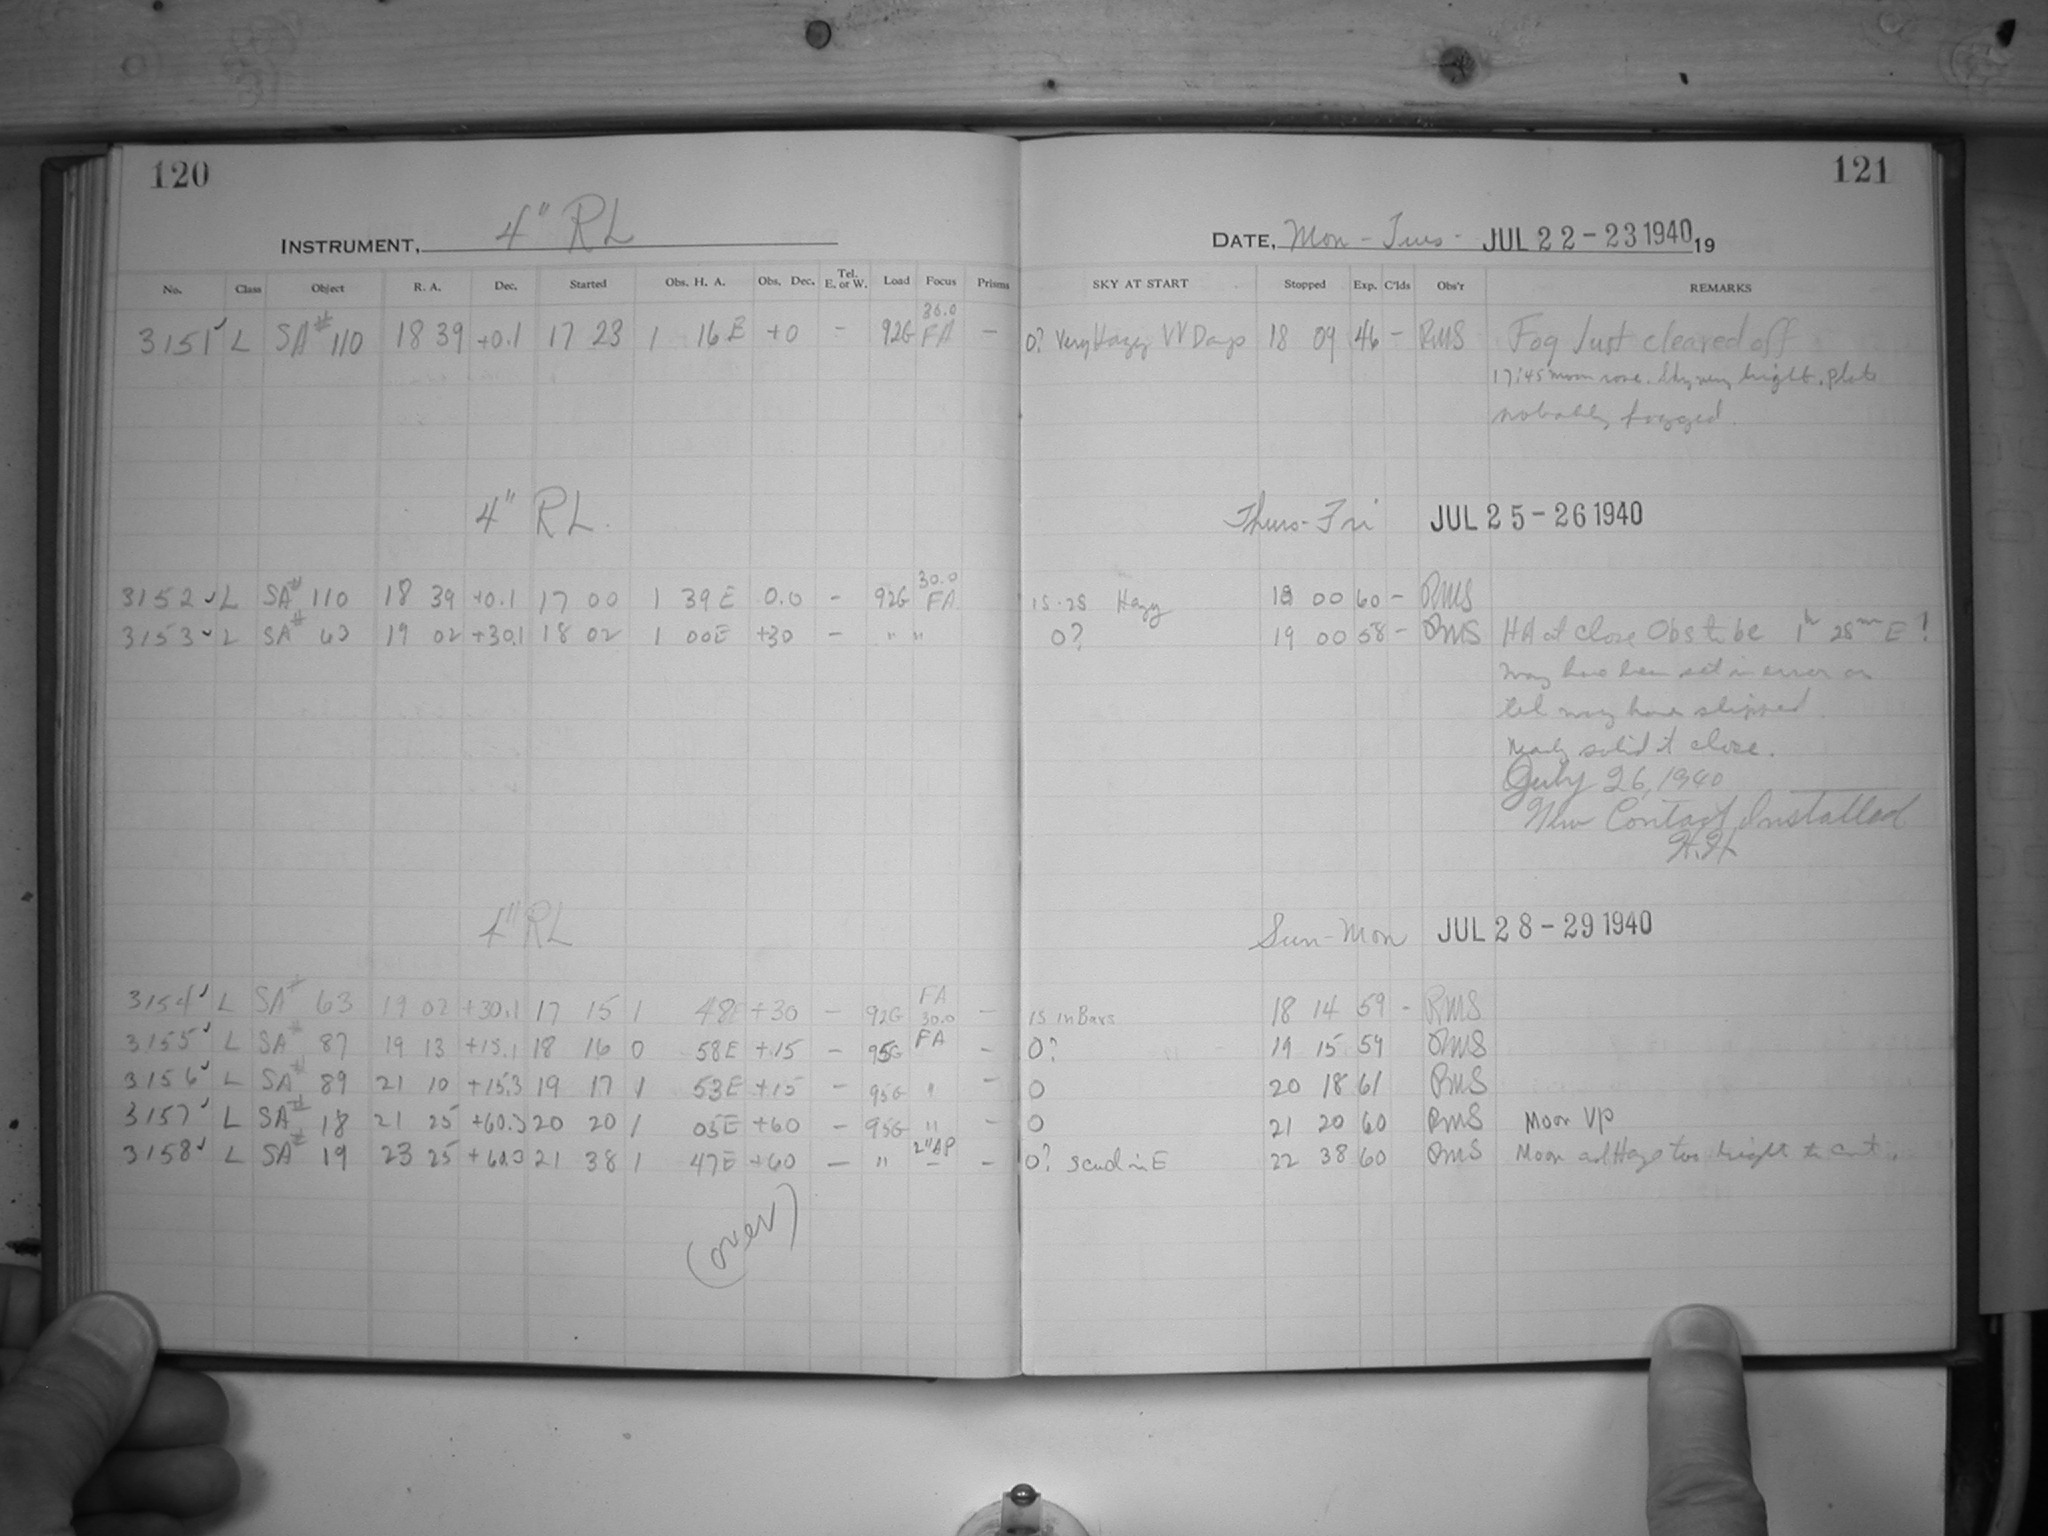 120
121
INSTRUMENT, 4" RL
DATE, Mon - Tues - JUL 22-23 1940, 19
No. Class Object R. A. Dec. Started Obs. H. A. Obs. Dec. Tel. E. or W. Load Focus Prisms SKY AT START Stopped Exp. C'lds Obs'r REMARKS
3151 L SA# 110 18 39 +0.1 17 23 1 16 E +0 - 92G 30.0 FA - 0? Very Hazy VV Damp 18 09 46 - RMS Fog Just cleared off
17:45 moon rose. Sky very bright. plate
probably fogged.
4" RL.
Thurs-Fri JUL 25-26 1940
3152 L SA# 110 18 39 +0.1 17 00 1 39 E 0.0 - 92G 30.0 FA 1S-2S Hazy 18 00 60 - RMS
3153 L SA# 63 19 02 +30.1 18 02 1 00E +30 - " " 0? 19 00 58 - RMS HA at close Obs to be 1h 28m E!
may have been set in error or
tel may have slipped.
Nearly solid at close.
July 26, 1940
New Contact Installed
H.H
4" RL
Sun-Mon JUL 28-29 1940
3154 L SA# 63 19 02 +30.1 17 15 1 48E +30 - 92G FA 30.0 - 1S in Bars 18 14 59 - RMS
3155 L SA# 87 19 13 +15.1 18 16 0 58E +15 - 95G FA - 0? 19 15 59 RMS
3156 L SA# 89 21 10 +15.3 19 17 1 53E +15 - 95G " - 0 20 18 61 RMS
3157 L SA# 18 21 25 +60.3 20 20 1 05E +60 - 95G " - 0 21 20 60 RMS Moon Up
3158 L SA# 19 23 25 +60.3 21 38 1 47E +60 - " 2"AP - - 0? scud in E 22 38 60 RMS Moon and Haze too bright to cont.
(over)